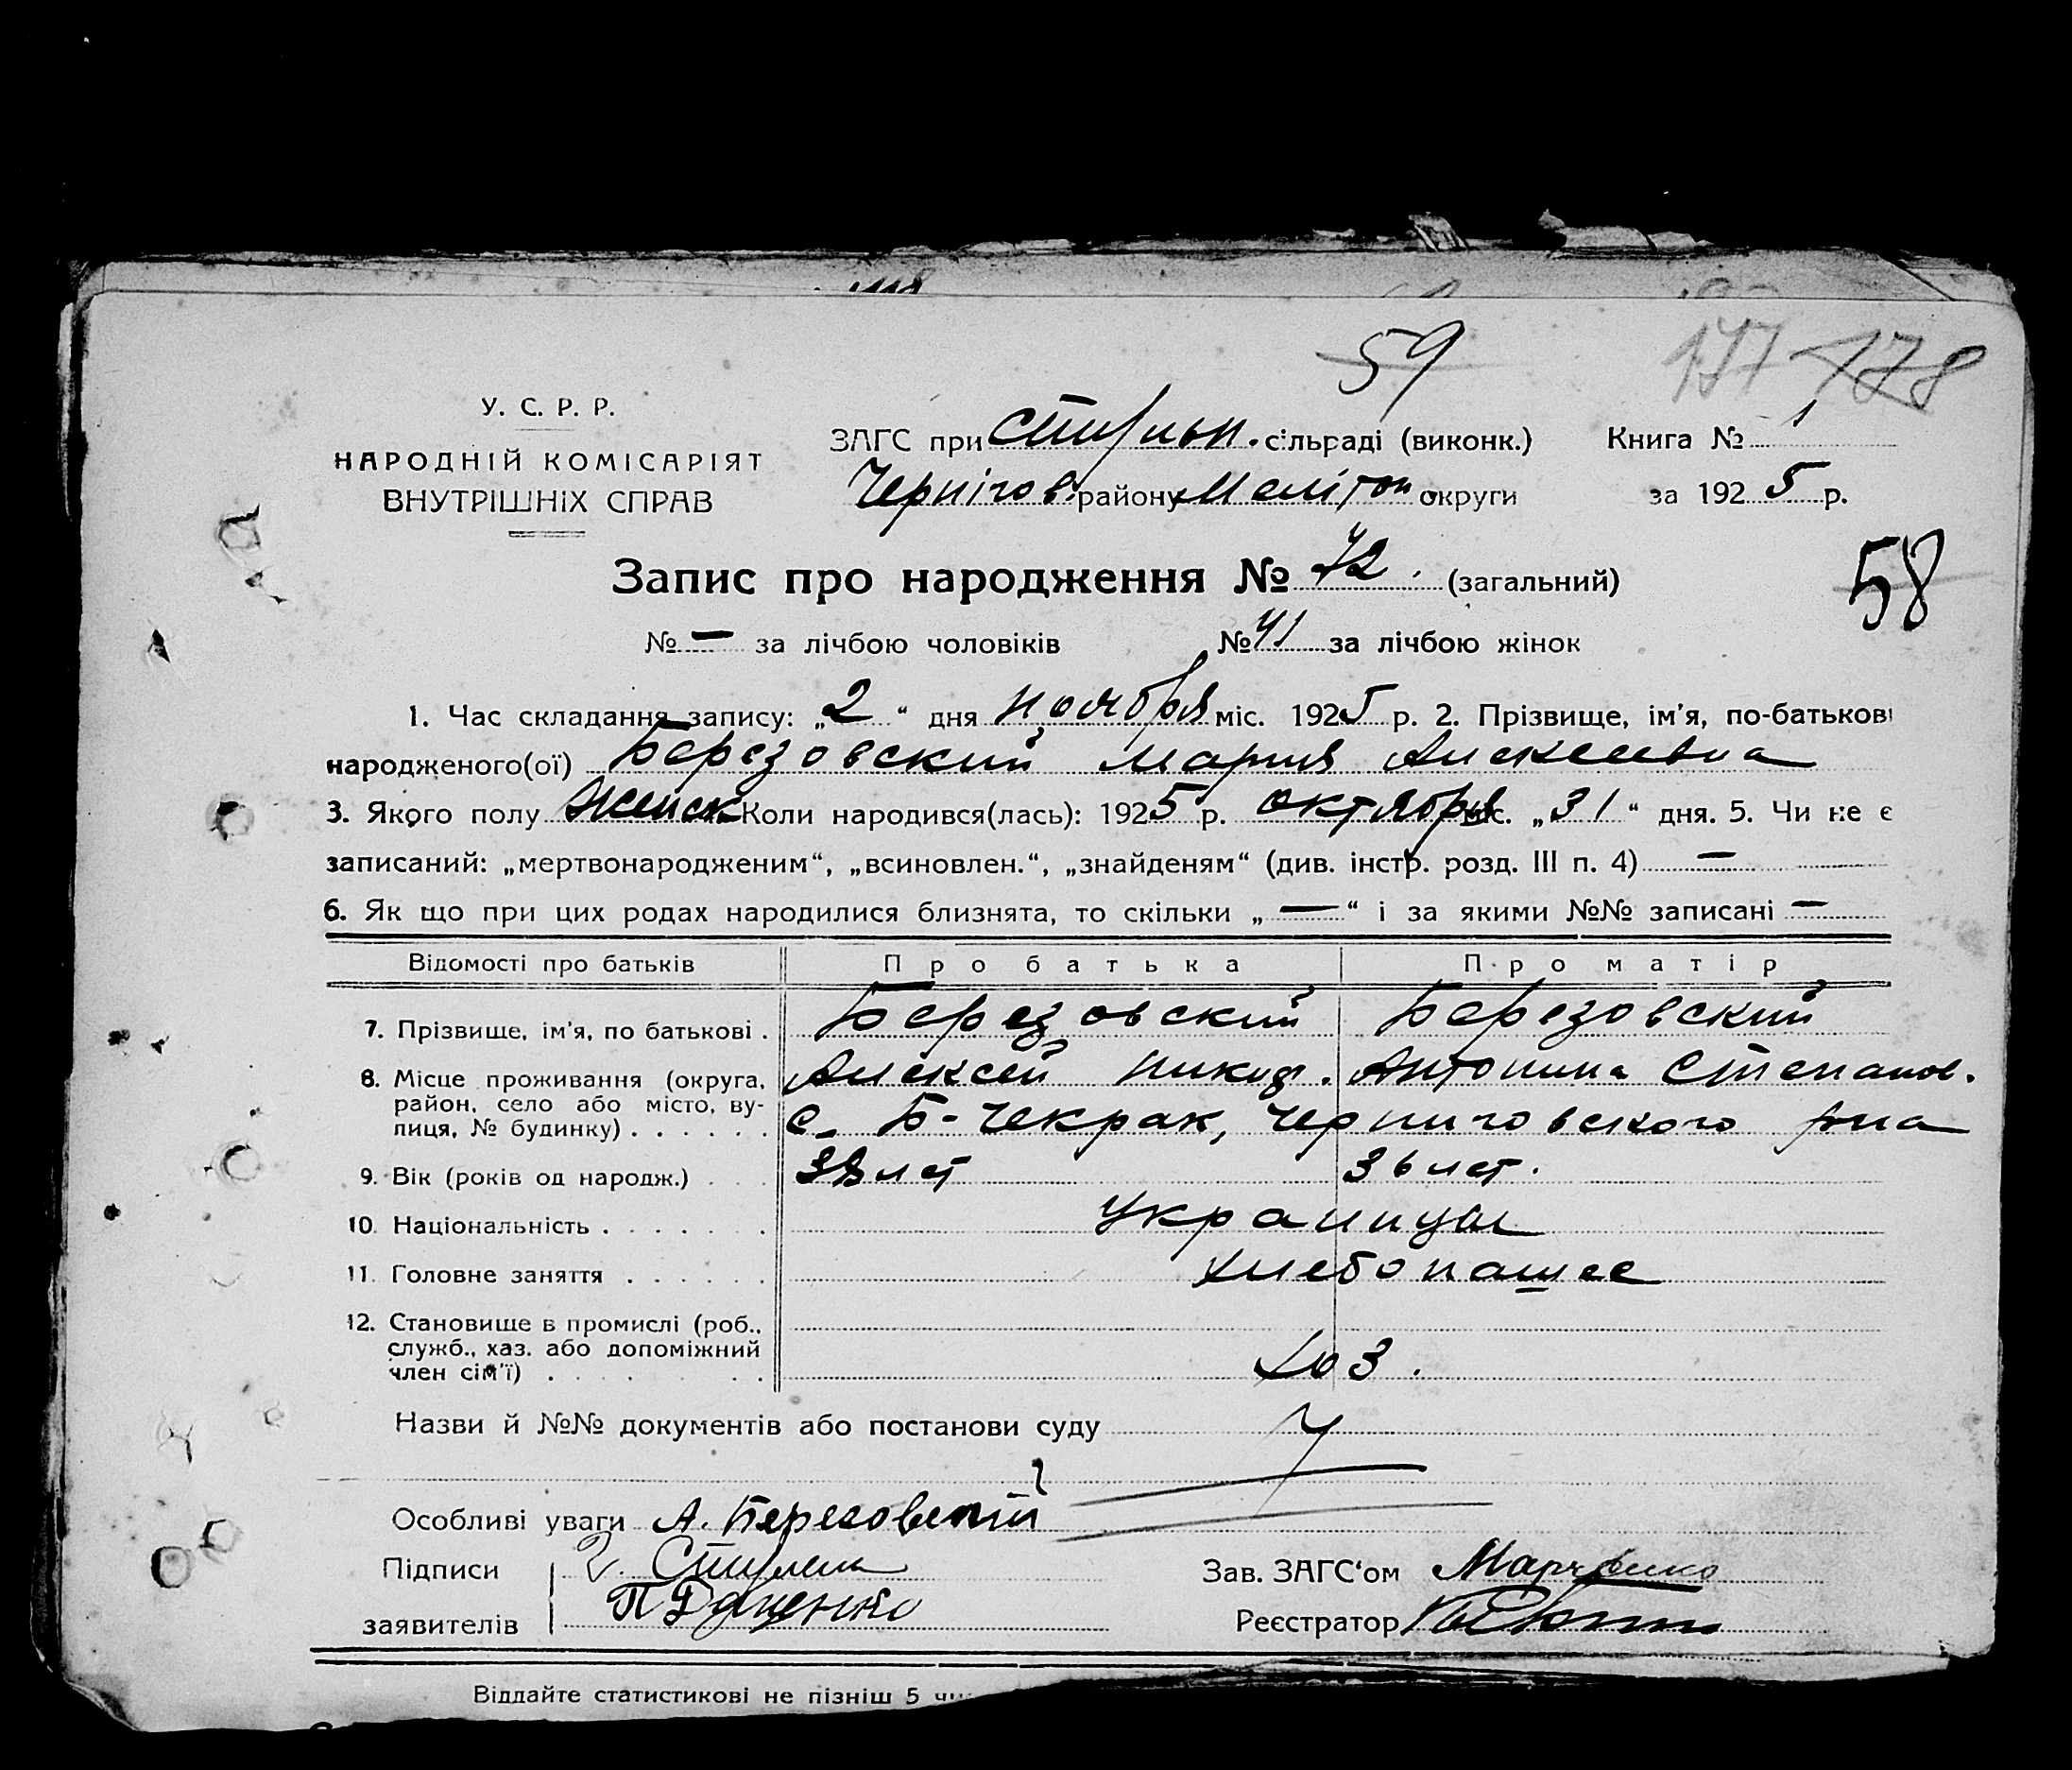 59
177 178
У. С. Р. Р.
НАРОДНІЙ КОМІСАРІЯТ
ВНУТРІШНІХ СПРАВ
ЗАГС при сільраді (виконк.) Книга № 1
Чернігов. району Меліт округи за 1925 р.
58
Запис про народження № 72. (загальний)
№ — за лічбою чоловіків № 41 за лічбою жінок
1. Час складання запису: „2“ дня ноября міс. 1925 р. 2. Прізвище, ім'я, по-батькові
народженого(ої) Березовский Мария Алексеевна
3. Якого полу женск Коли народився(лась): 1925 р. октября міс. „31“ дня. 5. Чи не є
записаний: „мертвонародженим“, „всиновлен.“, „знайденям“ (див. інстр. розд. III п. 4) —
6. Як що при цих родах народилися близнята, то скільки „—“ і за якими №№ записані —
Відомості про батьків Про батька Про матір
7. Прізвище, ім'я, по батькові . Березовский Березовский
Алексей Никид. Антонина Степанов.
8. Місце проживання (округа,
район, село або місто, ву-
лиця, № будинку) . . . . . . с. Б-Чекрак, Черниговского р-на
9. Вік (років од народж.) . . . лет 36 лет.
10. Національність . . . . . . . Украинцы
11. Головне заняття . . . . . . хлебопашес
12. Становище в промислі (роб.,
служб., хаз. або допоміжний
член сім'ї) . . . . . . . . хоз.
Назви й №№ документів або постанови суду
Особливі уваги А. Березовский
Підписи
заявителів П Доценко
Зав. ЗАГС'ом Марченко
Реєстратор
Віддайте статистикові не пізніш 5